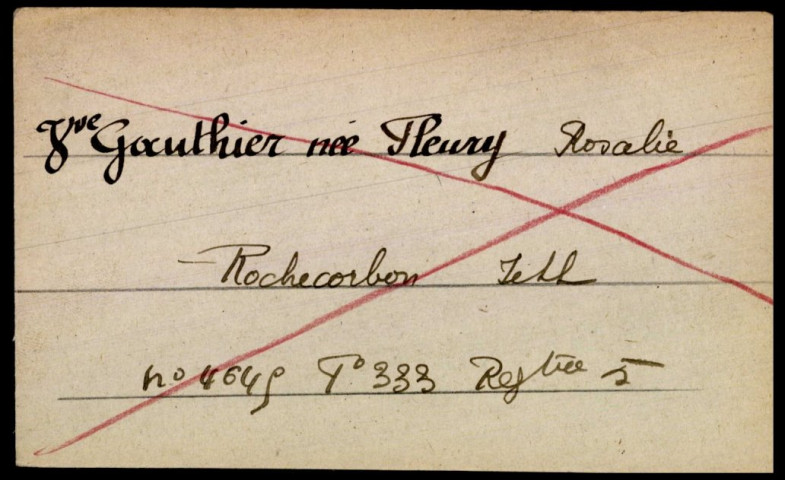 Vve Gauthier née Fleury Rosalie
Rochecorbon I et L
no 4649 Fo 333 Regtre 5